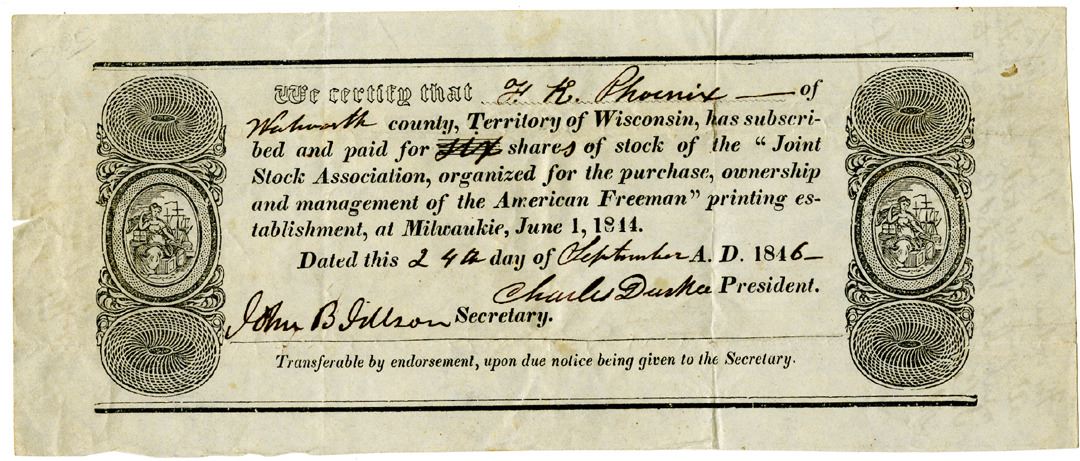 We certify that F. K. Phoenix — of
Walworth county, Territory of Wisconsin, has subscri-
bed and paid for shares of stock of the "Joint
Stock Association, organized for the purchase, ownership
and management of the American Freeman" printing es-
tablishment, at Milwaukie, June 1, 1844.
Dated this 24th day of September A. D. 1846 –
Charles Durkee President.
John B Secretary.
Transferable by endorsement, upon due notice being given to the Secretary.